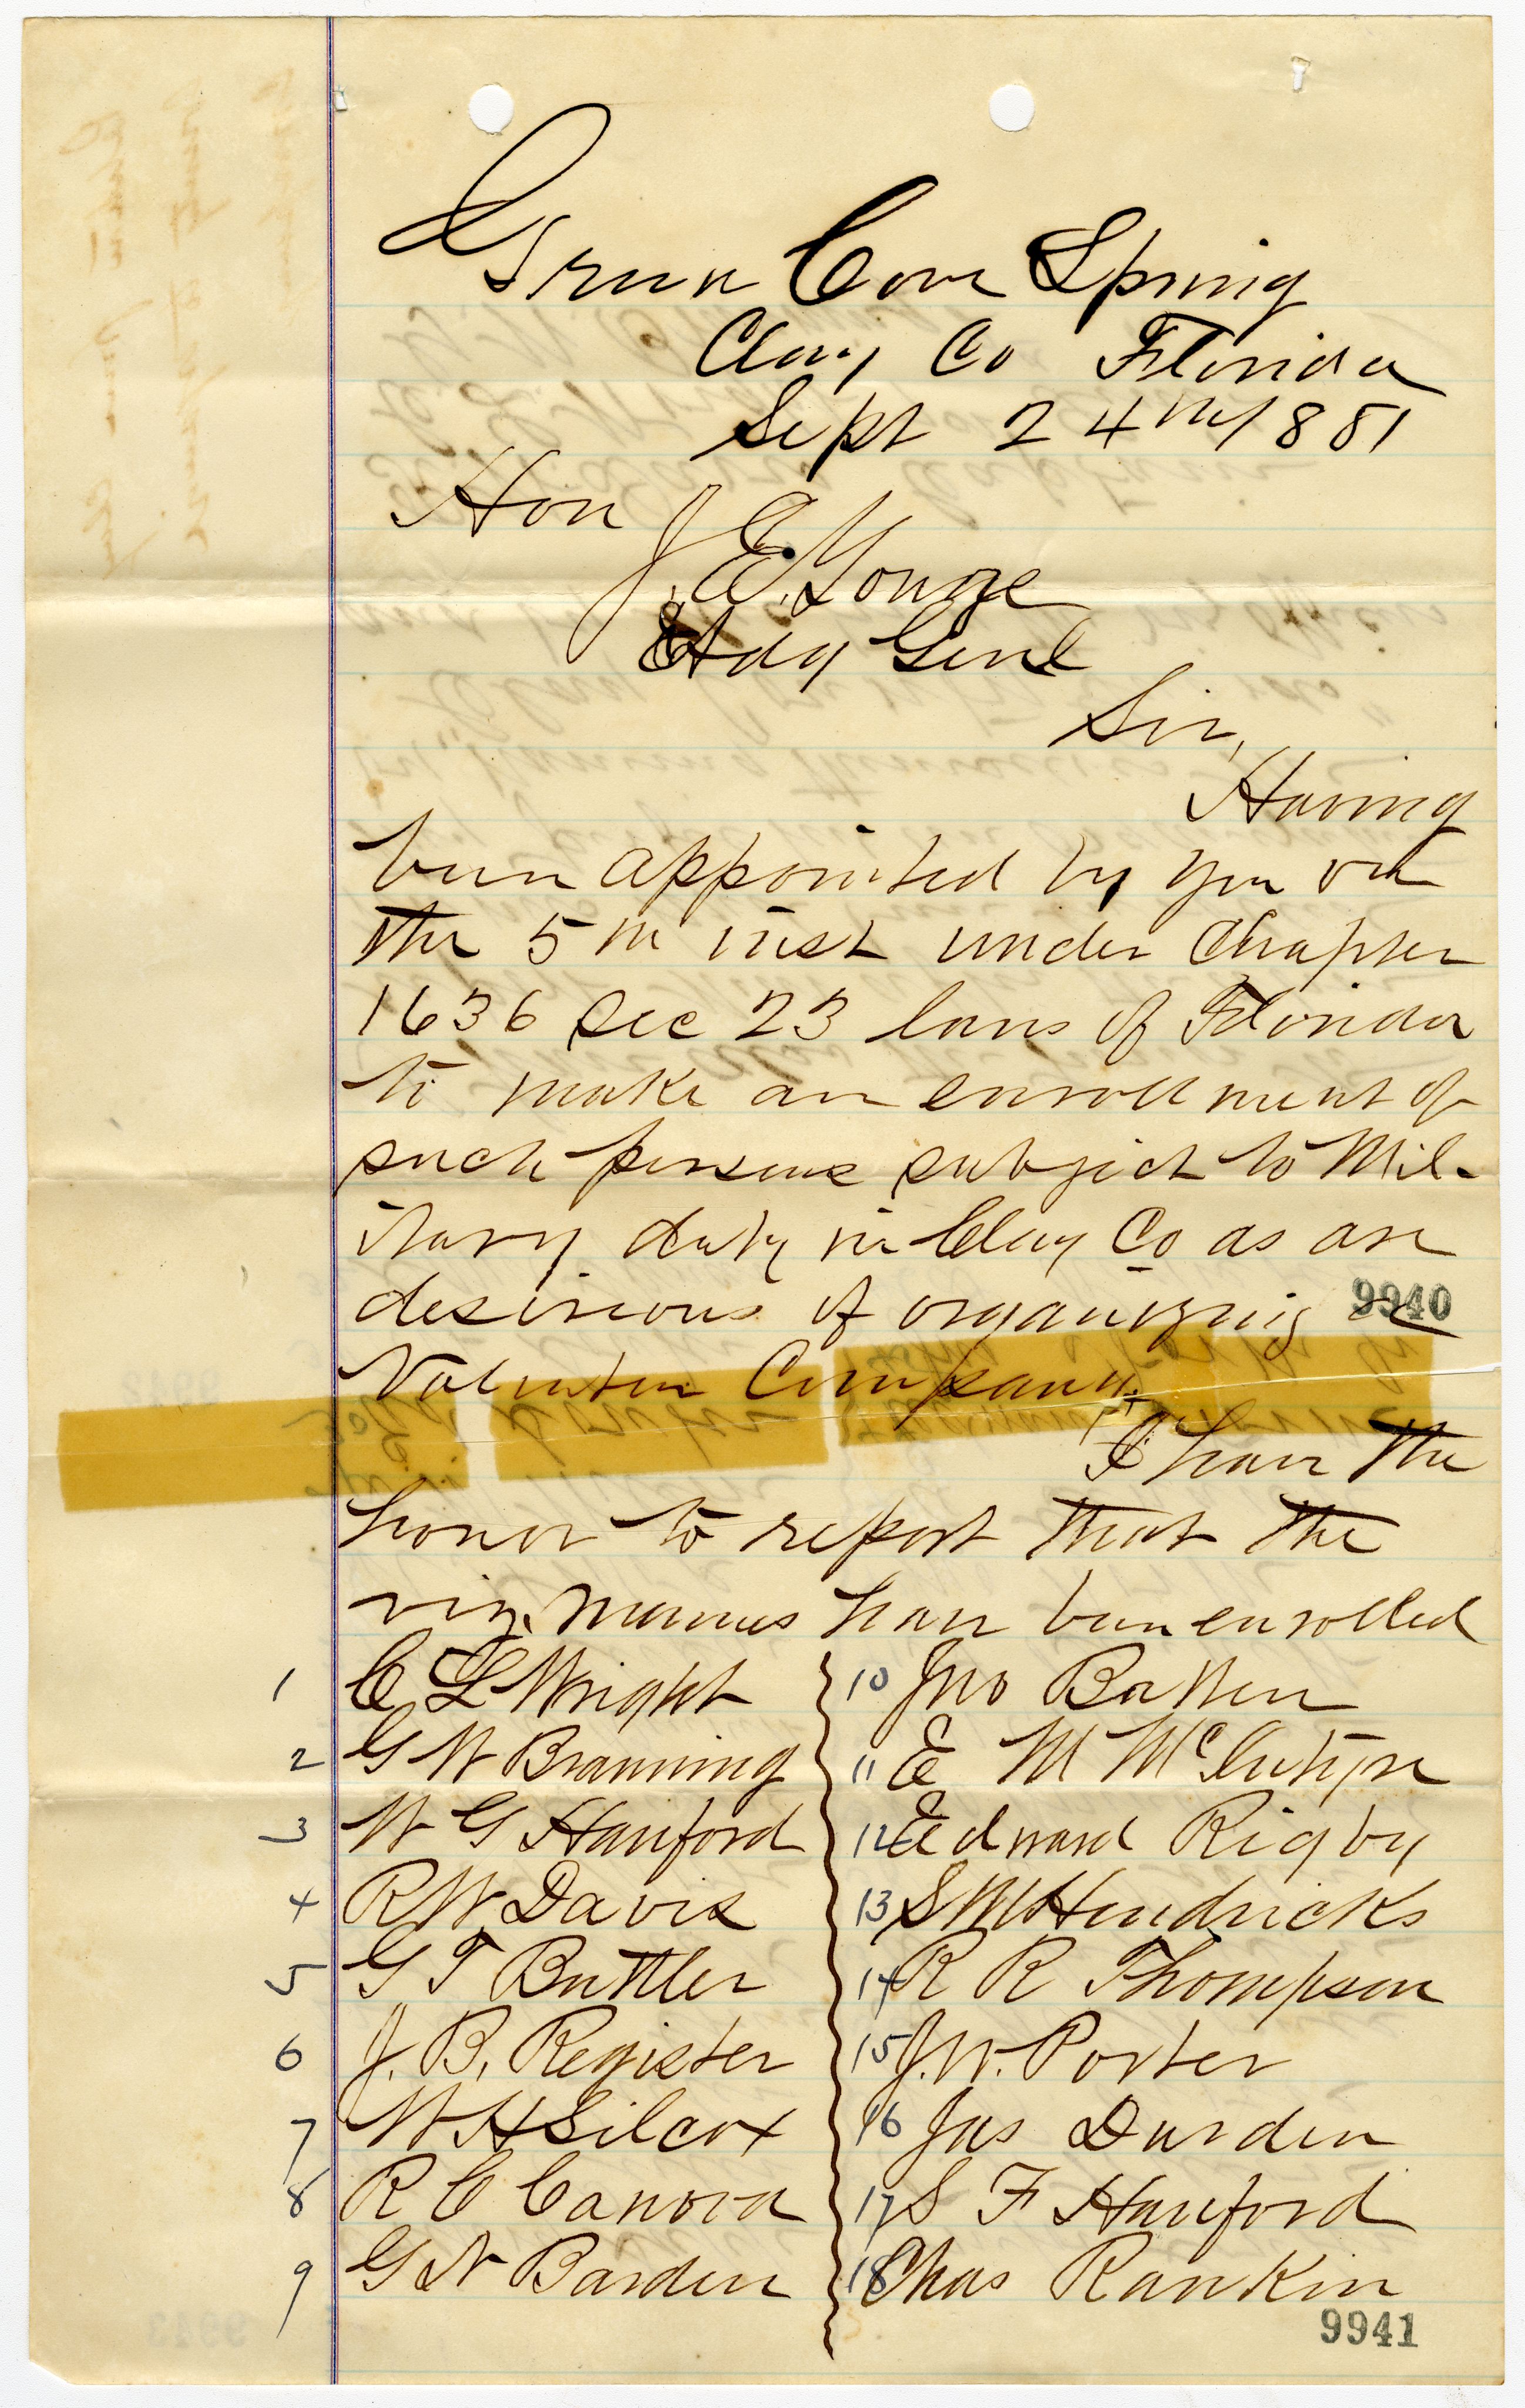 Green Cove Spring
Clay Co Florida
Sept 24th/881
Hon
J. E. Yonge
Adg Genl
Sir,
Having
been appointed by you on
the 5th inst under Chapter
1636 Sec 23 laws of Florida
to make an enrollment of
such persons subject to Mil-
itary duty in Clay Co as are
desirious of organizing a
9940
Volunteer Company.
I have the
honor to report that the
viz. names have been enrolled
1 C L Wright
2 G W Branning
3 W G Hanford
4 R W Davis
5 G T Buttler
6 J. B. Register
7 W H Silcox
8 R C Canova
9 G N Barden
10 Jno Batten
11 E M McIntyre
12 Edward Rigby
13 S M Hendricks
14 R R Thompson
15 J. W. Porter
16 Jas Durden
17 S F Hanford
18 Chas Rankin
9941